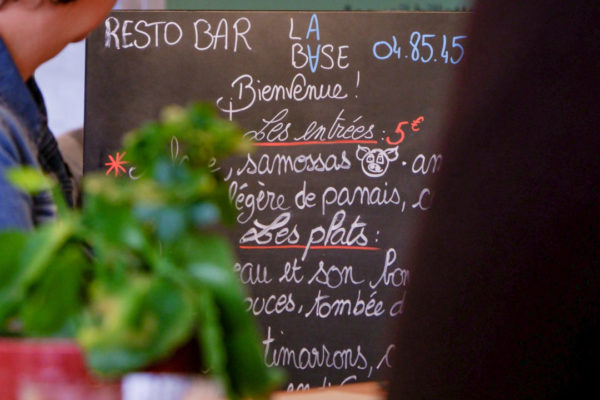 RESTO BAR LA BASE 04.85.45
Bienvenue !
Les entrées : 5€
* samossas
légère de panais,
Les plats :
eau et son bon
ouces, tombée d
timarrons,